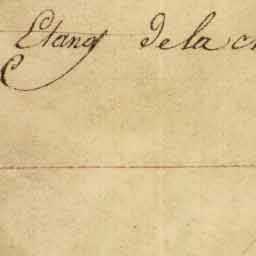 Etang de la